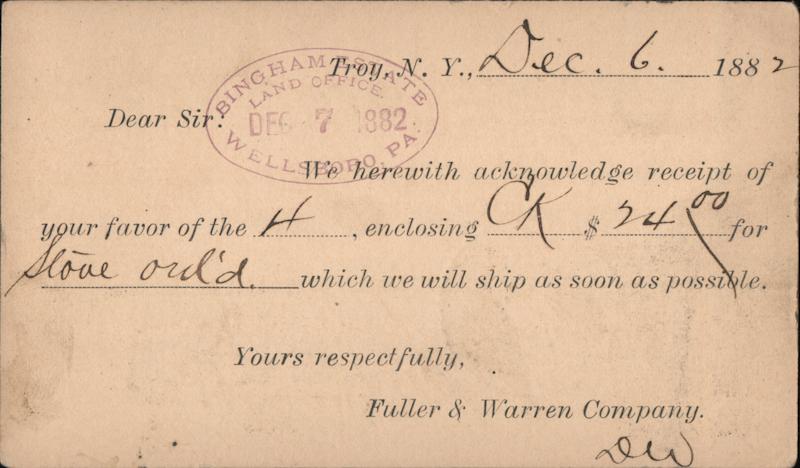 Troy, N. Y., Dec. 6. 1882
BINGHAM ESTATE
LAND OFFICE.
DEC 7 1882
WELLSBORO, PA.
Dear Sir:
We herewith acknowledge receipt of
your favor of the 4, enclosing CK $ 24 00 for
Stove ord'd. which we will ship as soon as possible.
Yours respectfully,
Fuller & Warren Company.
DW